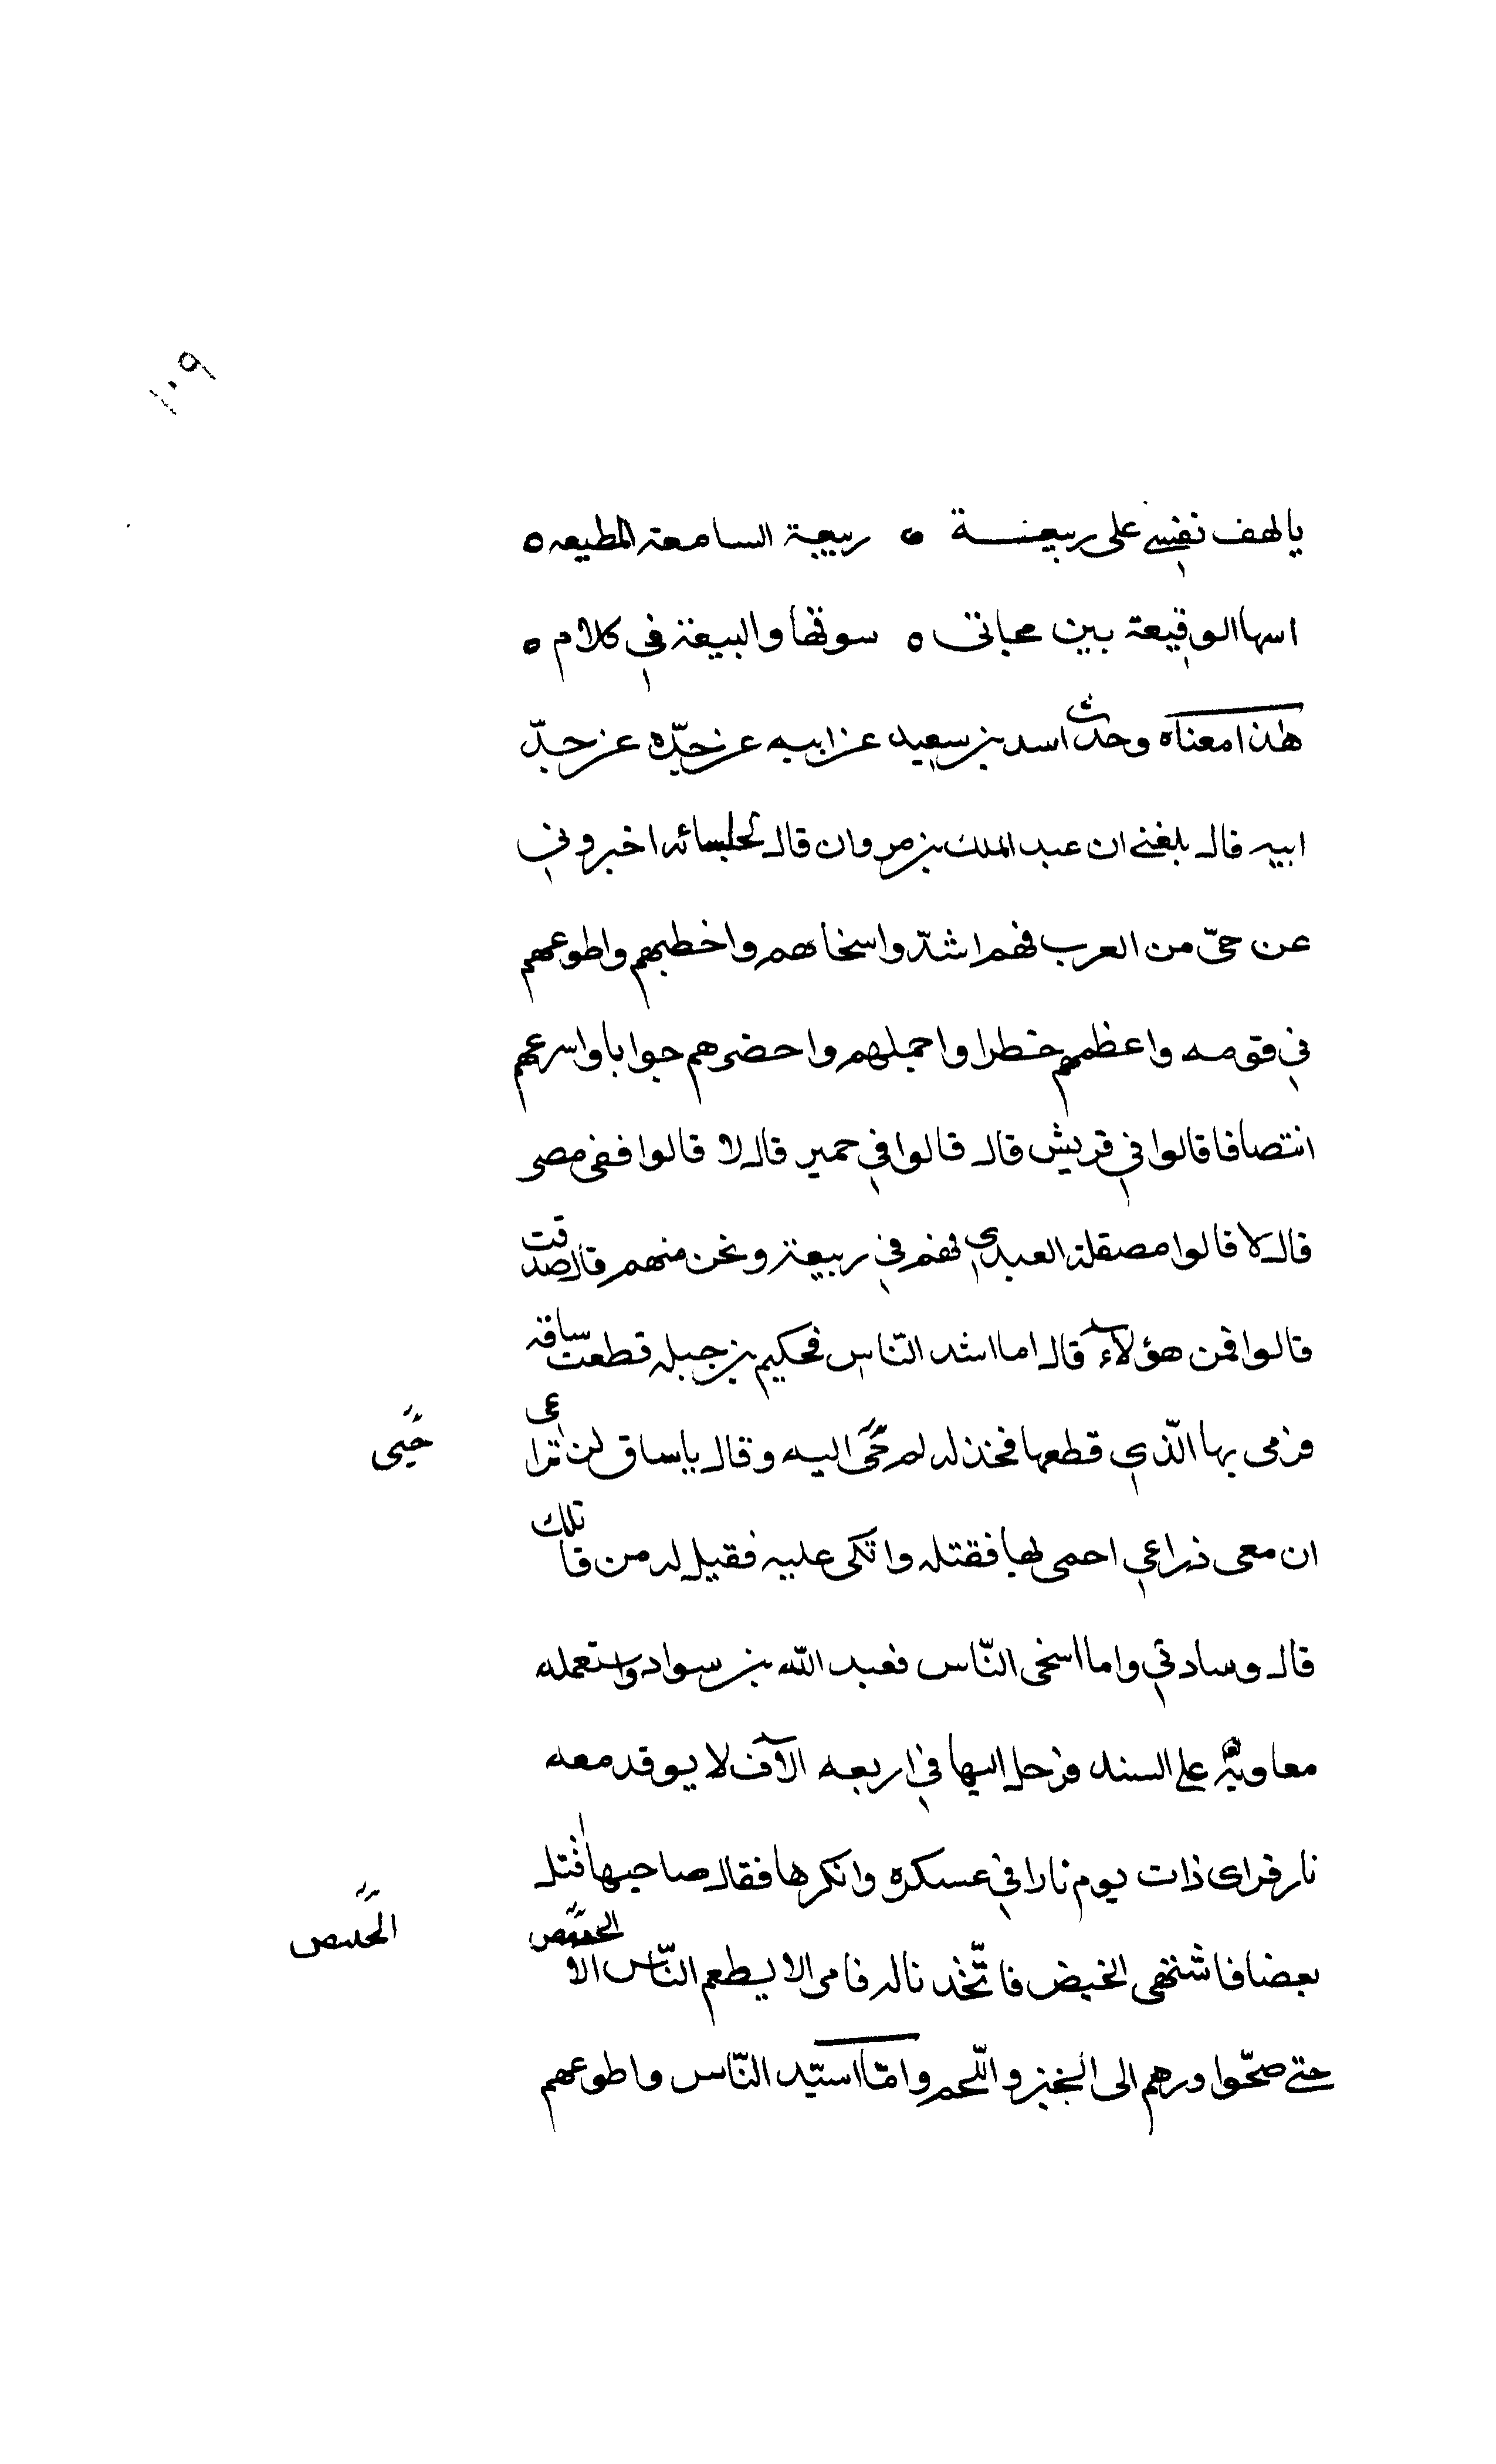 ١٠٩
يالهف نفسي على ربيعـــة ه ربيعة السامعة المطيعه ه
اسها الوقيعة بين محباتى ه سوتها والبيعة في كلام ه
هذا معناه وحدث اسد بن سعيد عن ابيه عن جدّه عن جدّ
ابيه قال بلغني ان عبد الملك بن مروان قال لجلسائه اخبروني
عن حىّ من العرب فهم اشدّ واسخاهم واخطبهم واطوعهم
في قومه واعظمهم خطرا واحملهم واحضرهم جوابا واسرعهم
انتصافا قالوا في قريش قال قالوا في حمير قال لا قالوا ففى مصر
قال لا قالوا مصقلة العبدي لفهم في ربيعة ونحن منهم قال صدقت
قالوا فمن هؤلاء قال اما اشد الناس فحكيم بن جبله قطعت ساقه
فرمى بها الّذي قطعها فخذله لم حّى اليه وقال ياساق لن تراعى
حّيى
ان معى ذراعي احمى لها فقتله واتكى عليه فقيل له من قاتلك
قال وسادتي واما اسخى النّاس فعبد الله بن سواد واستعمله
معاوية على السند فرحل اليها في اربعه الآف لا يوقد معه
نار فراى ذات يوم نارا في عسكره وانكرها فقال صاحبها اقتل
بعضا فاشتهى الخبض فاتّخذناله فامر الا يطعم النّاس الا
الحىىص
حتى صحّوا ودرهم الى الخبز واللّحم وامّا اسيّد النّاس واطوعهم